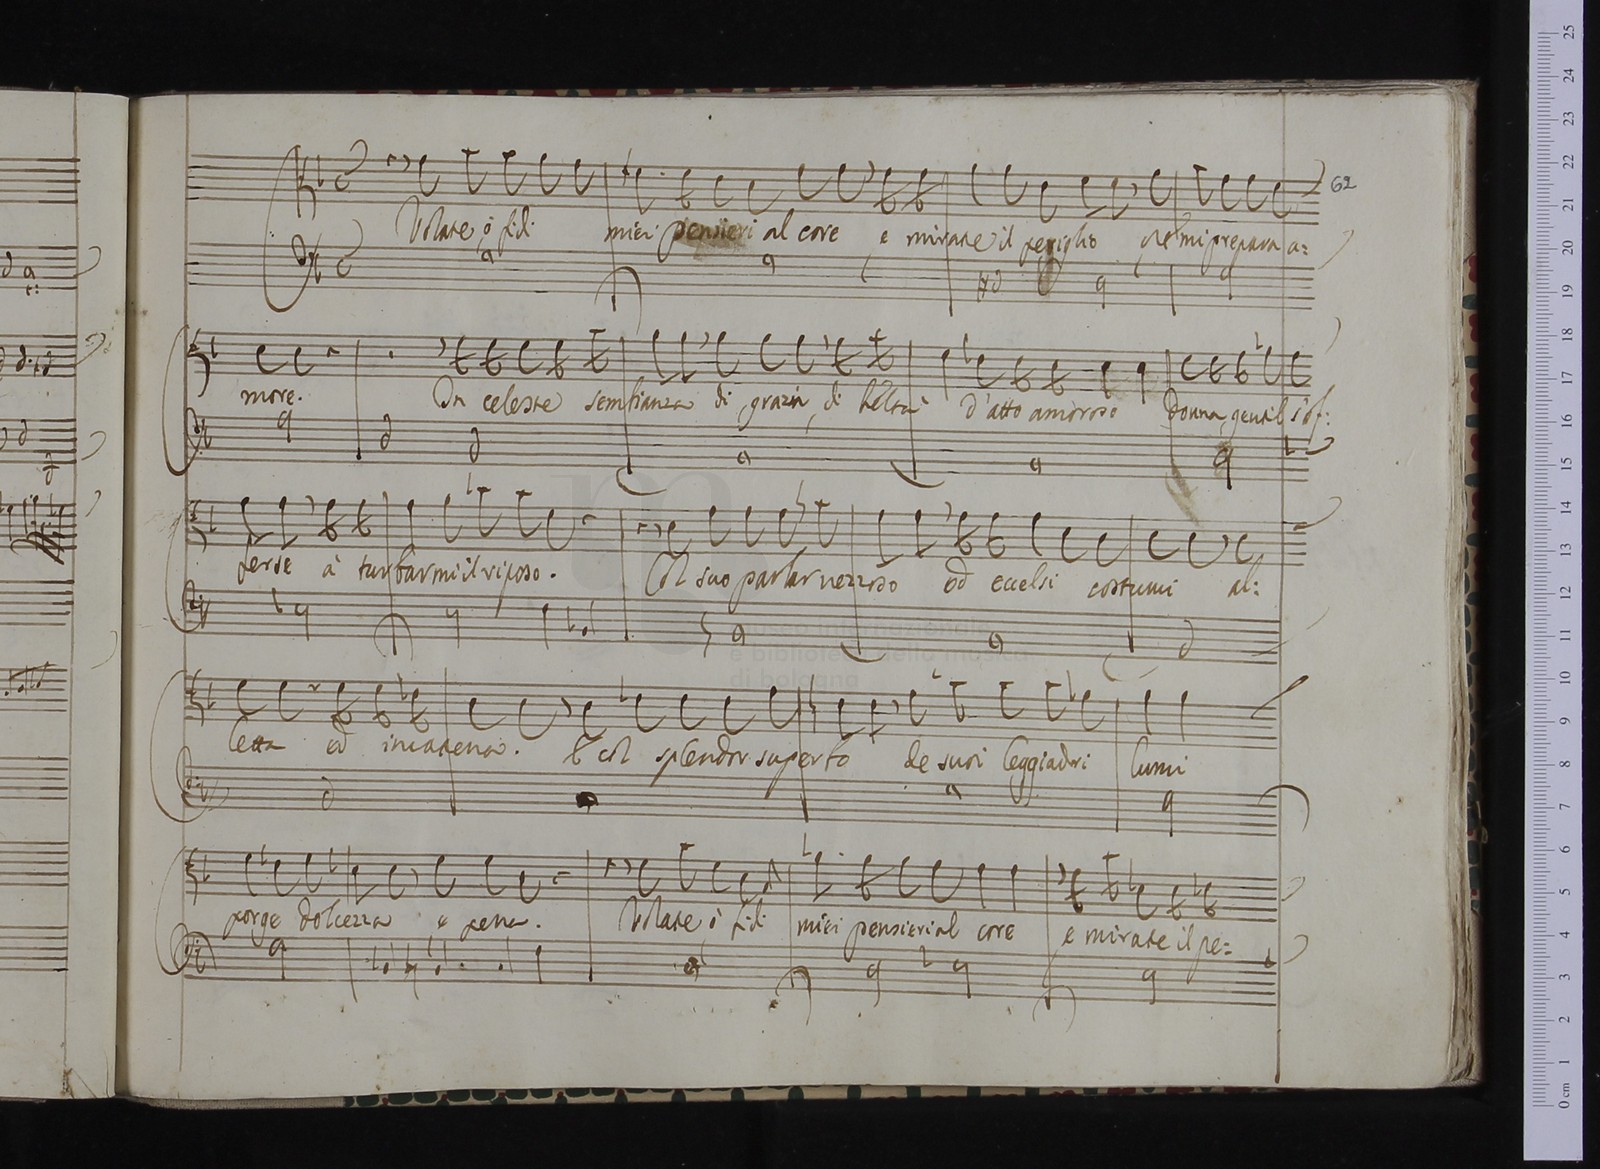 62
Volate ò fidi miei pensieri al core e mirate il periglio che mi prepara a:
more. Un celeste sembianza di grazia di beltà d'atto amoroso donna gentil s'of:
ferse à turbarmi il riposo. Col suo parlar vezzoso ed eccelsi costumi al:
letta ed incatena. E col splendor superbo de suoi leggiadri lumi
porge dolcezza e pena. Volate ò fidi miei pensieri al core e mirate il pe:
museo internazionale
e biblioteca della musica
di bologna
25
24
23
22
21
20
19
18
17
16
15
14
13
12
11
10
9
8
7
6
5
4
3
2
1
0 cm